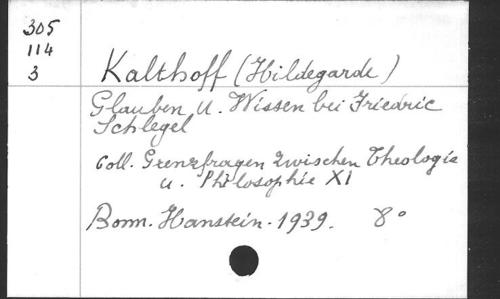 305
114
3
Kalthoff (Hildegarde)
Glauben u. Wissen bei Friedric
Schlegel
Coll. Grenzfragen zwischen Theologie
u. Philosophie XI
Bonn. Hanstein. 1939. 8°